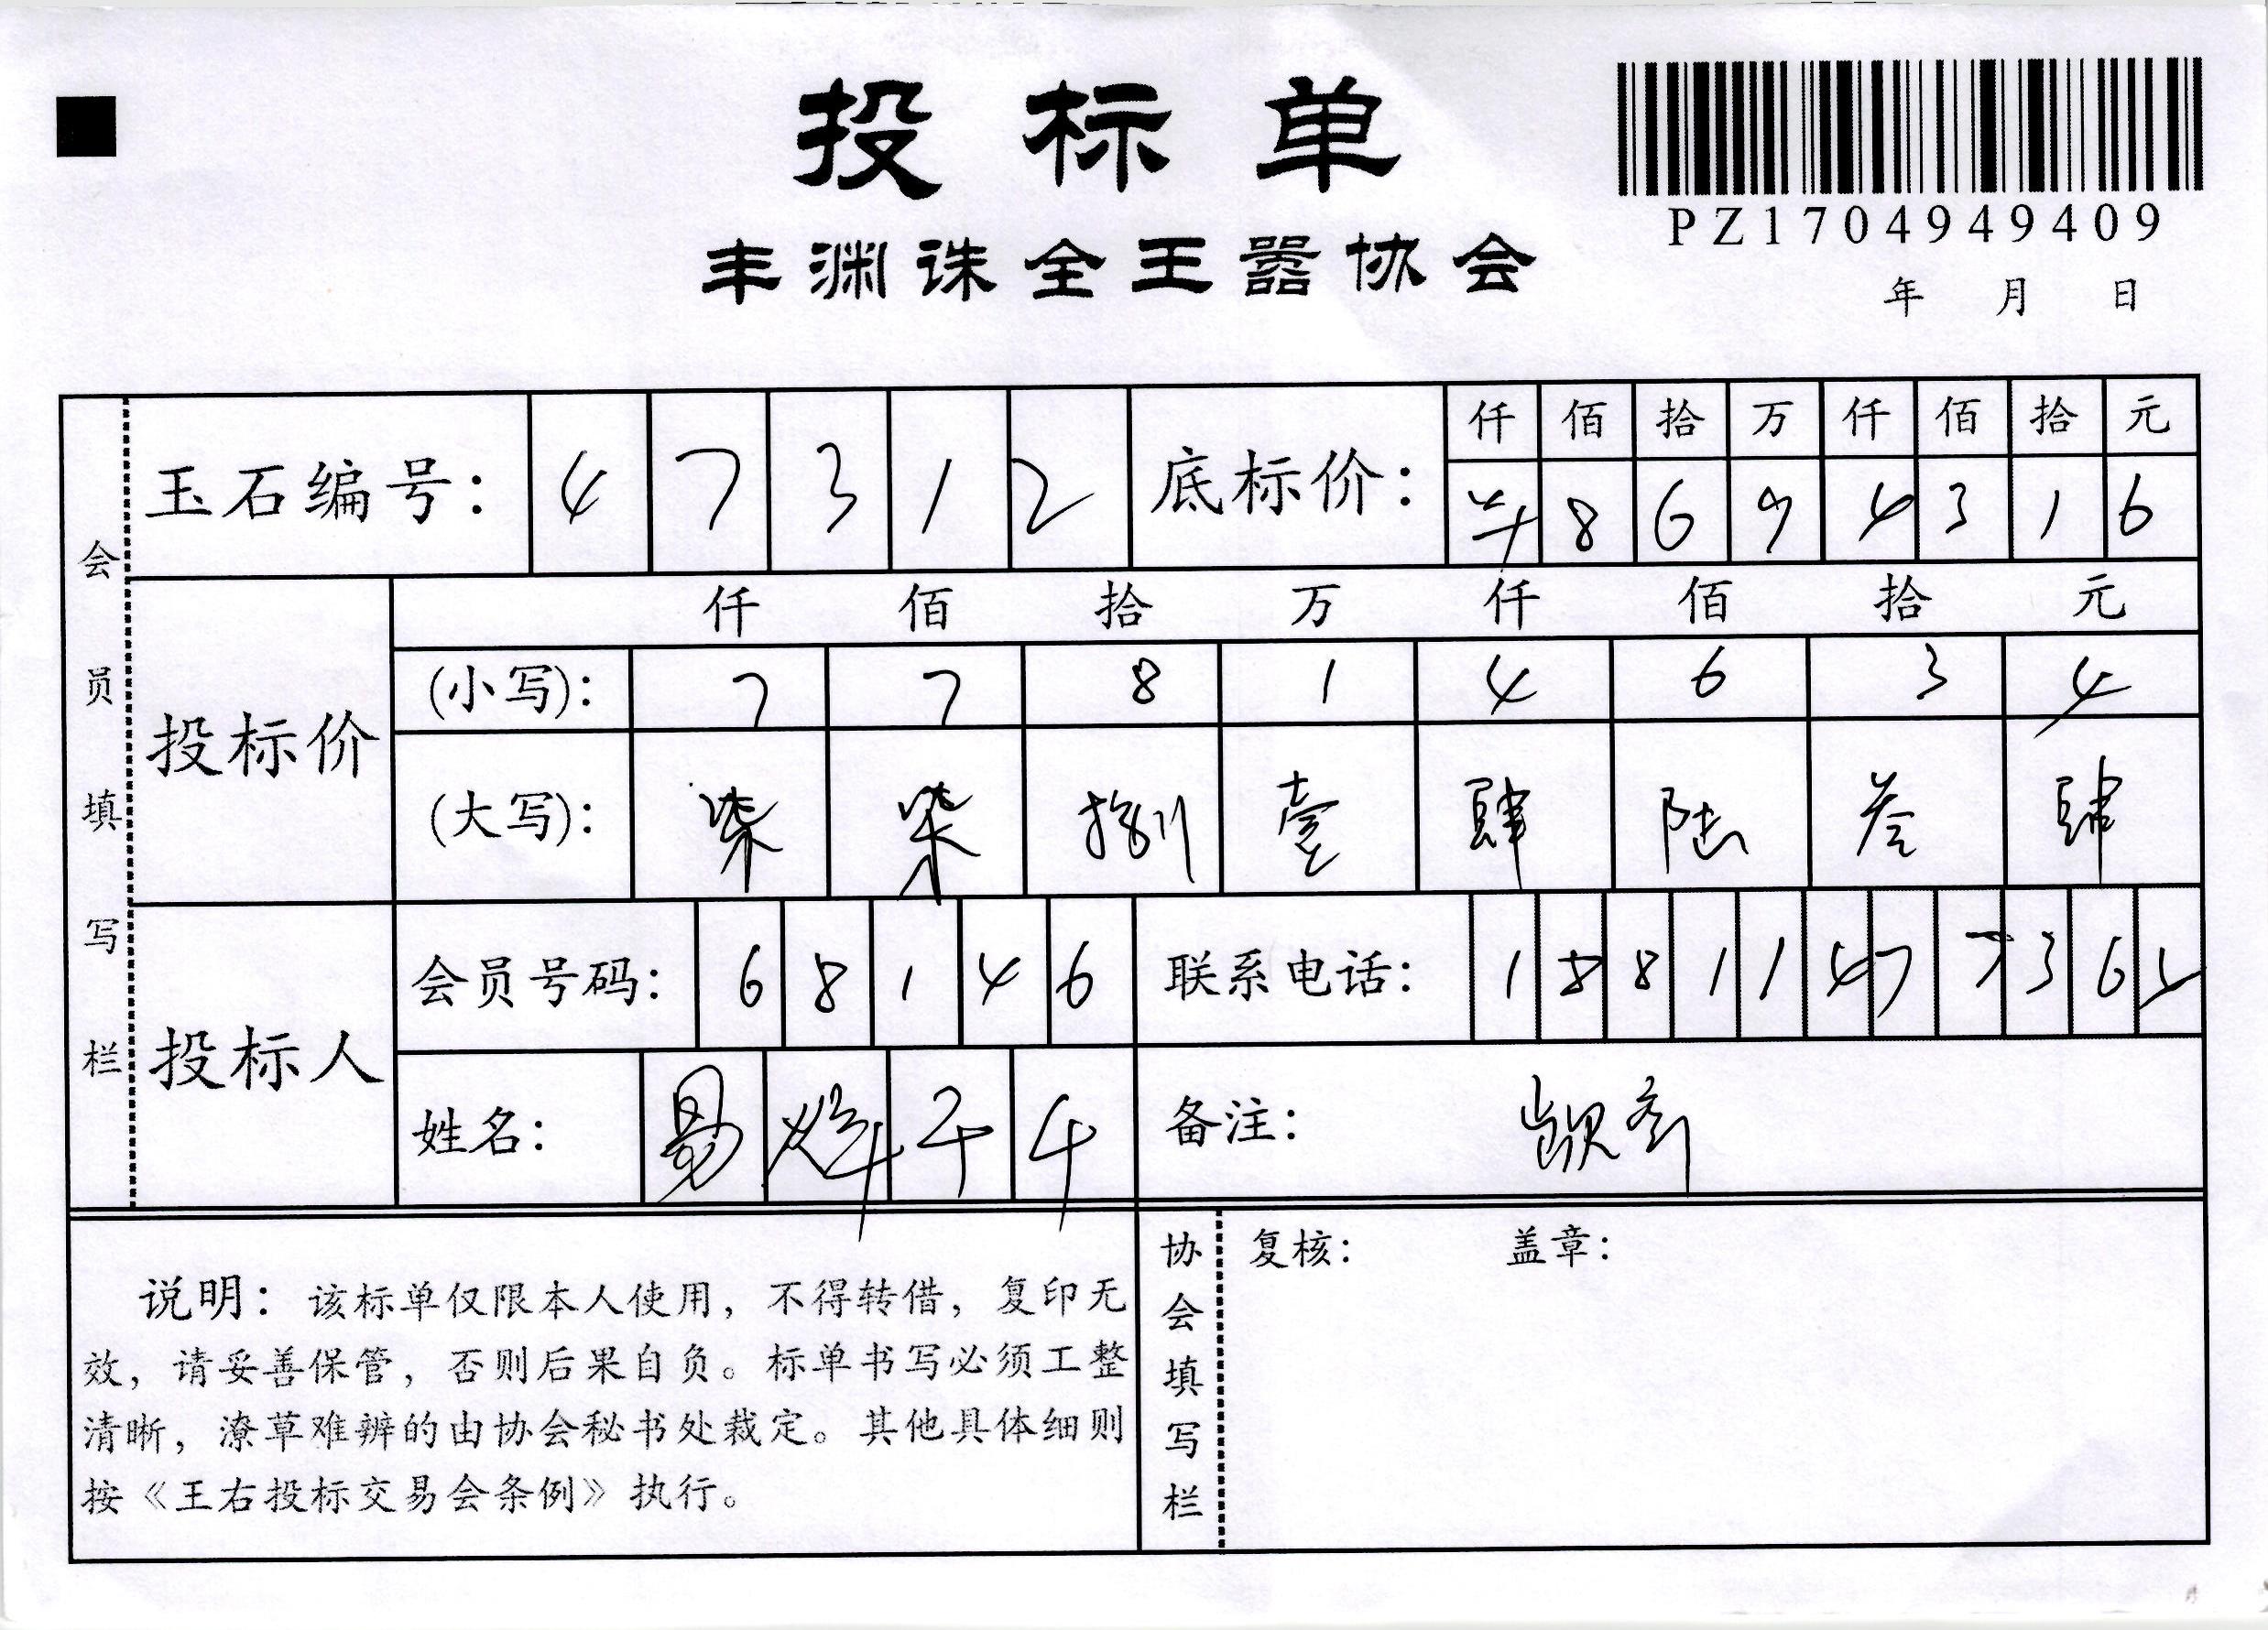 投标单
PZ1704949409
丰渊诛全王嚣协会
年 月 日
会员填写栏
玉石编号: 4 7 3 1 2
底标价: 仟 佰 拾 万 仟 佰 拾 元
8 6 9 4 3 1 6
投标价
仟 佰 拾 万 仟 佰 拾 元
(小写): 7 7 8 1 4 6 3 4
(大写): 柒 柒 捌 壹 肆 陆 叁 肆
投标人
会员号码: 6 8 1 4 6
联系电话: 1 8 8 1 1 4 7 7 3 6
姓名: 易
备注:
说明: 该标单仅限本人使用, 不得转借, 复印无
效, 请妥善保管, 否则后果自负。标单书写必须工整
清晰, 潦草难辨的由协会秘书处裁定。其他具体细则
按《王右投标交易会条例》执行。
协会填写栏
复核: 盖章: